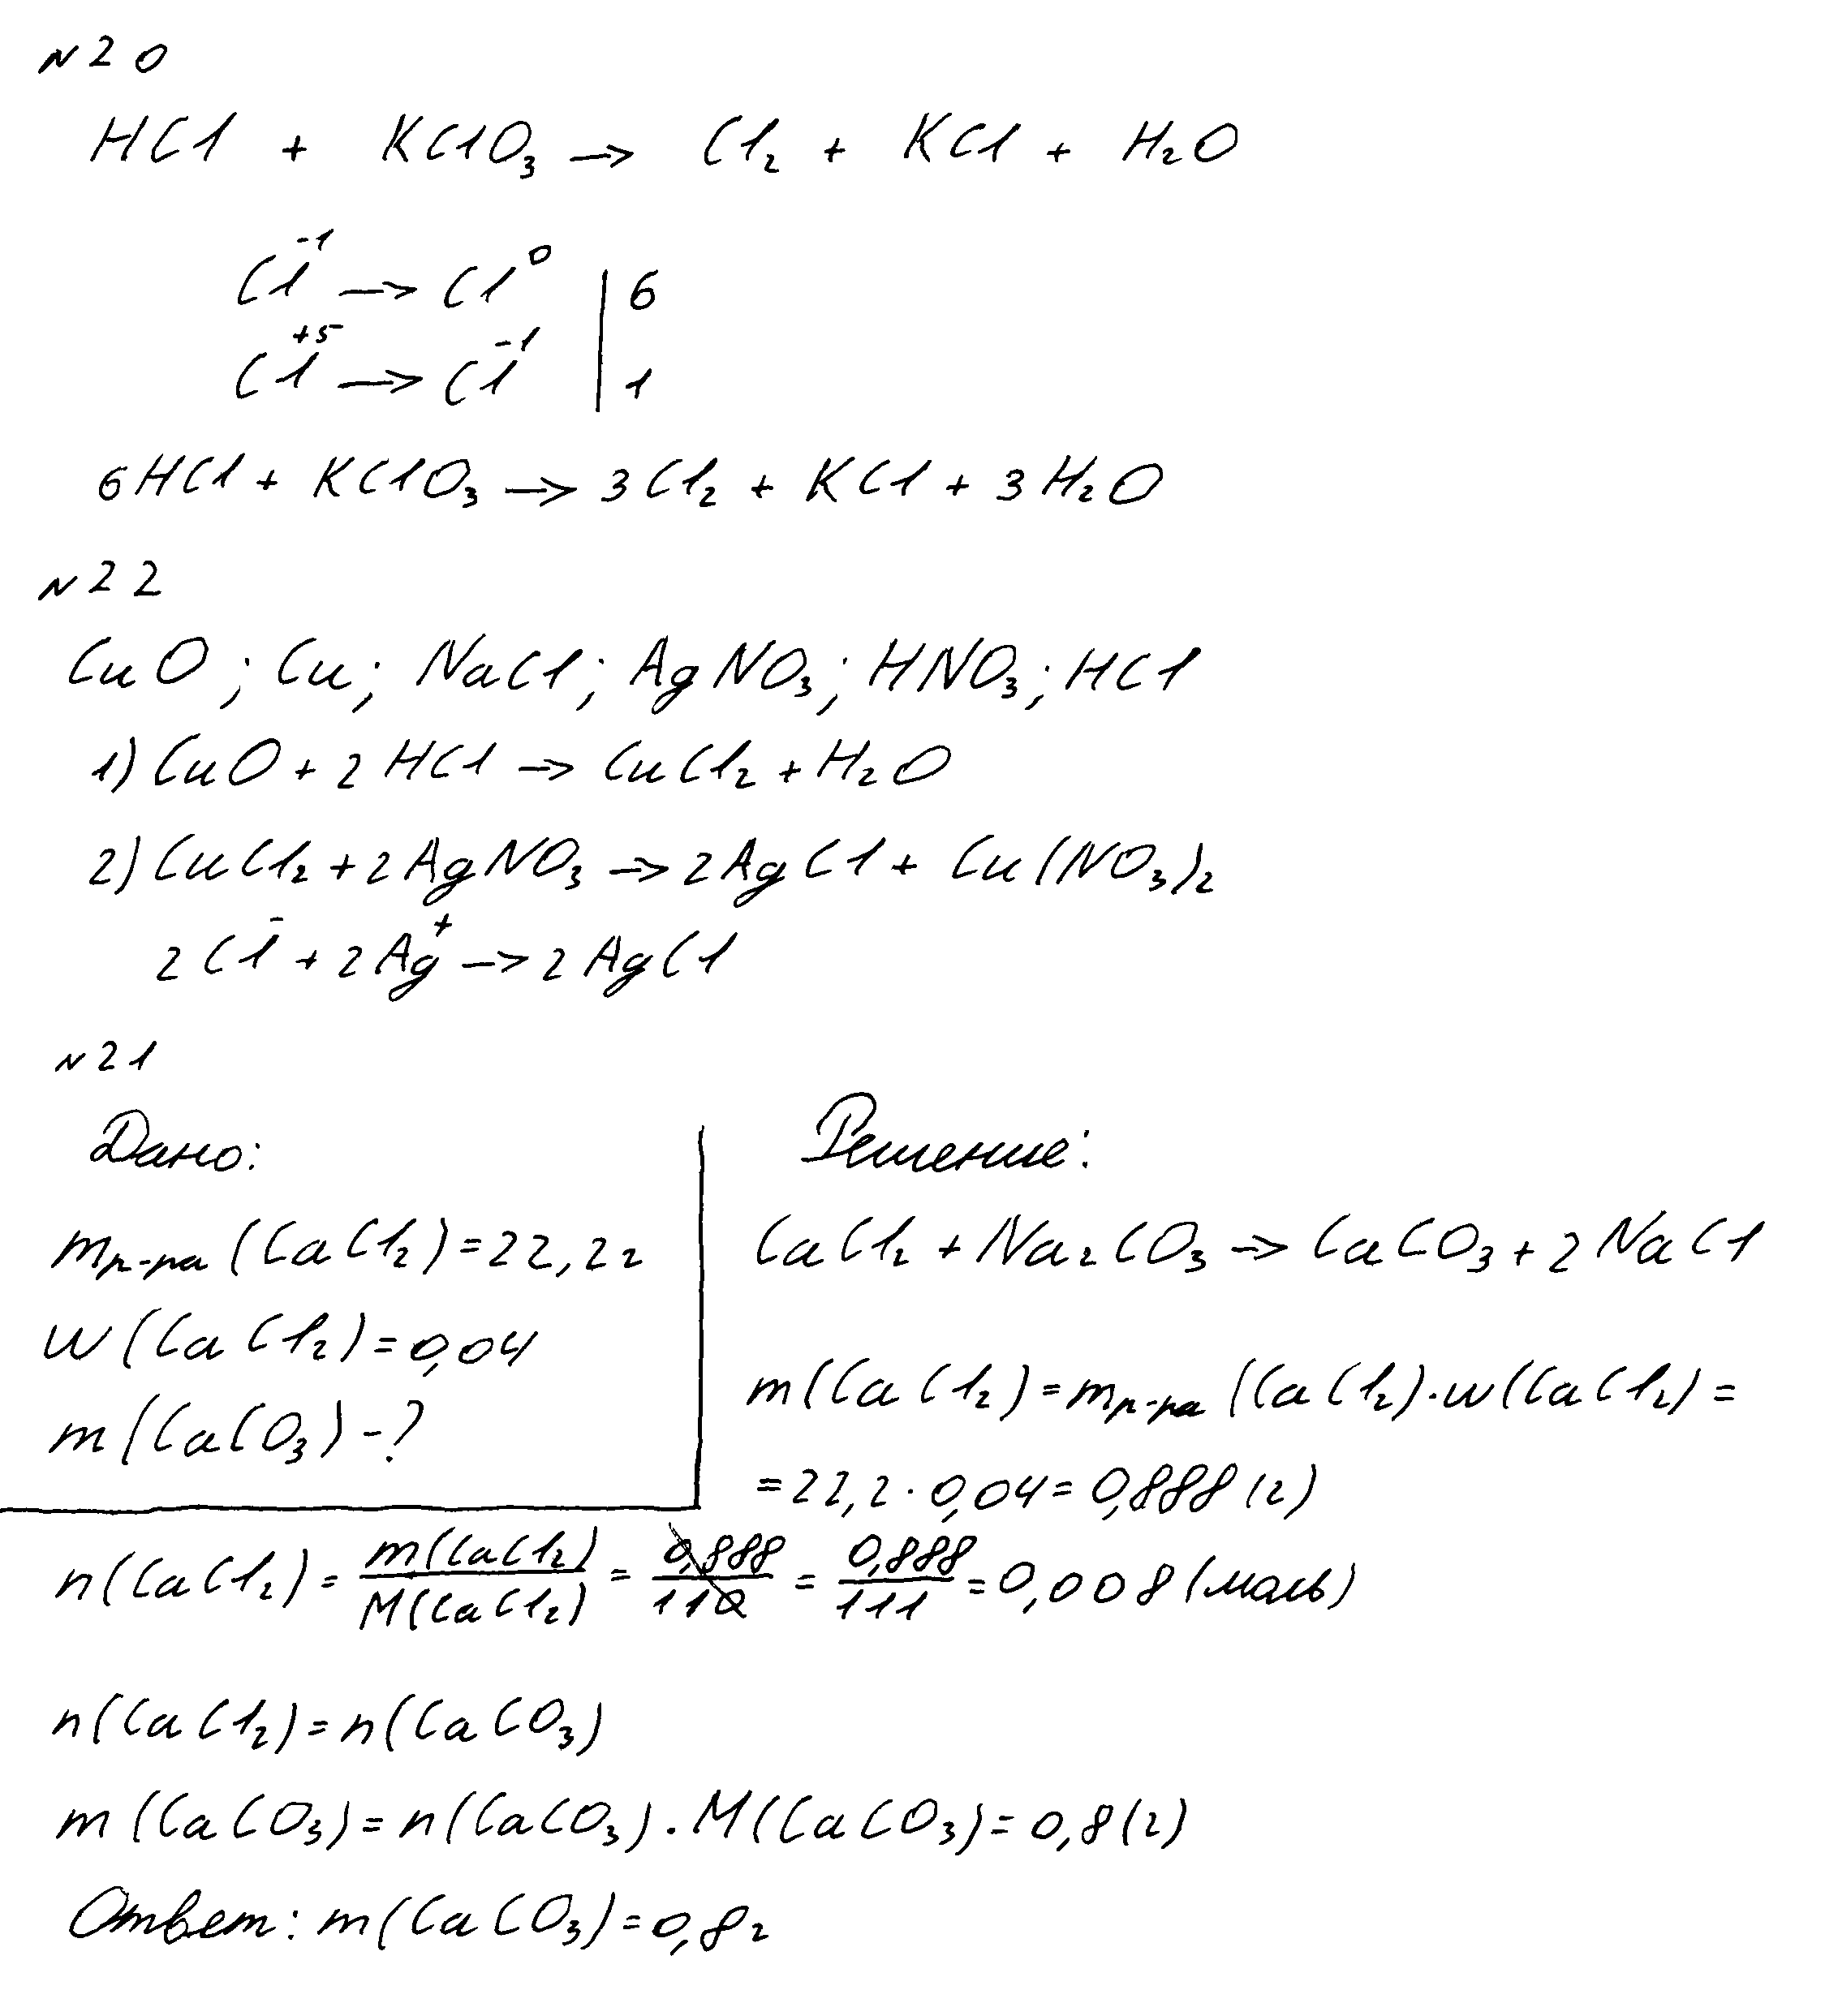 N20
HCl + KClO₃ → Cl₂ + KCl + H₂O
Cl⁻¹ → Cl⁰ | 6
Cl⁺⁵ → Cl⁻¹ | 1
6HCl + KClO₃ → 3Cl₂ + KCl + 3H₂O
N22
CuO; Cu; NaCl; AgNO₃; HNO₃; HCl
1) CuO + 2HCl → CuCl₂ + H₂O
2) CuCl₂ + 2AgNO₃ → 2AgCl + Cu(NO₃)₂
2Cl⁻ + 2Ag⁺ → 2AgCl
N21
Дано:
mр-ра(CaCl₂) = 22,2г
w(CaCl₂) = 0,04
m(CaCO₃) - ?
Решение:
CaCl₂ + Na₂CO₃ → CaCO₃ + 2NaCl
m(CaCl₂) = mр-ра(CaCl₂)·w(CaCl₂) =
= 22,2 · 0,04 = 0,888(г)
n(CaCl₂) = m(CaCl₂)/M(CaCl₂) = 0,888/110 = 0,888/111 = 0,008(моль)
n(CaCl₂) = n(CaCO₃)
m(CaCO₃) = n(CaCO₃)·M(CaCO₃) = 0,8(г)
Ответ: m(CaCO₃) = 0,8г